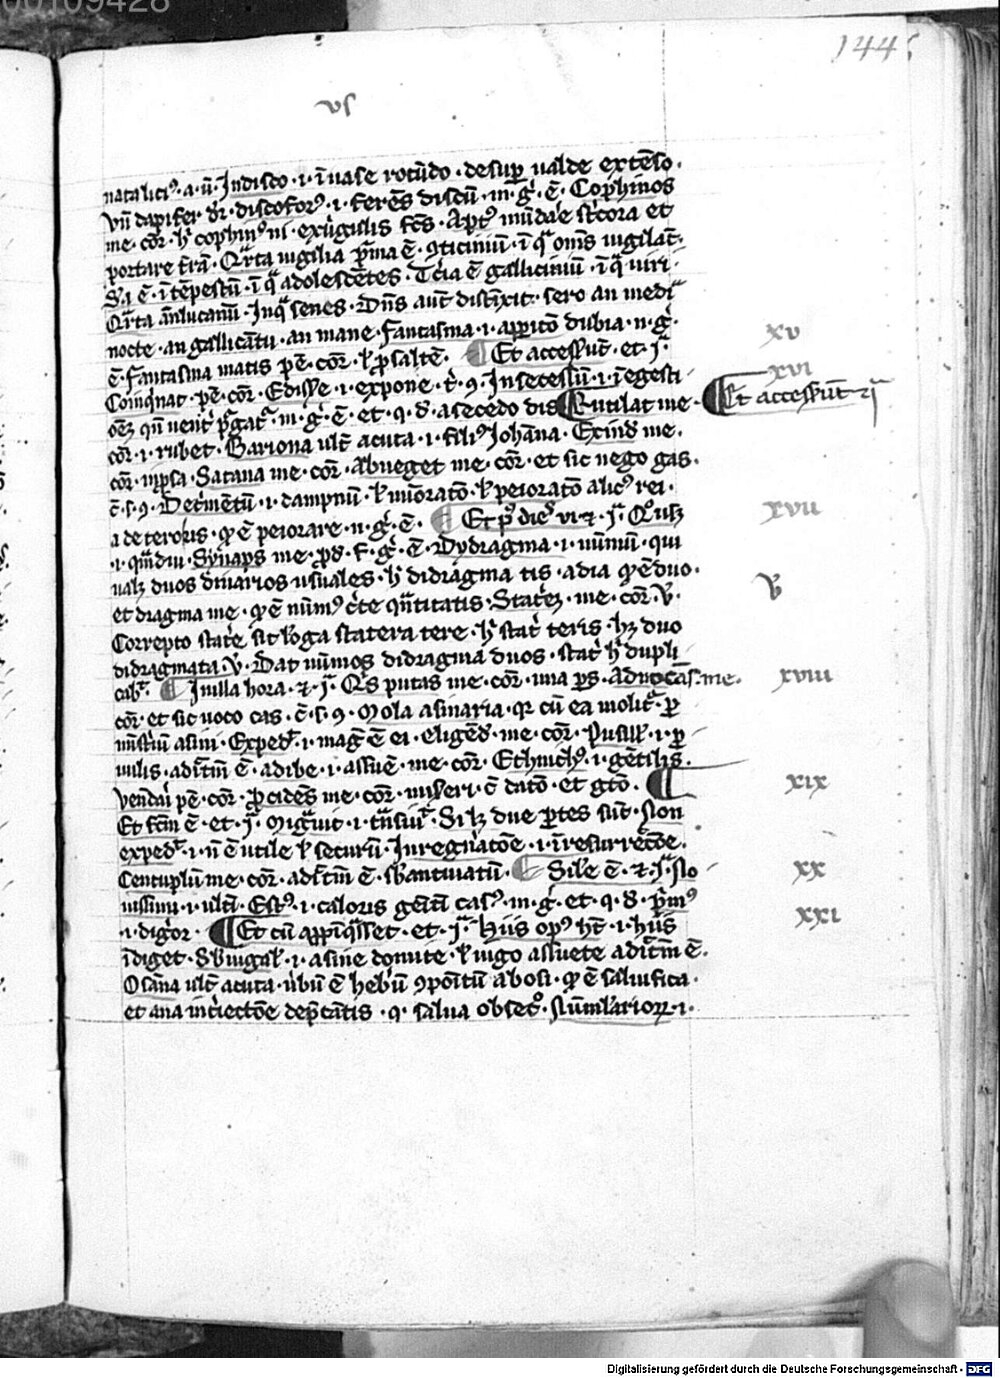 00109428
144
vs
natalici⁹ · a · ū · In disco · i · ī uase rotūdo · desuꝑ ualde extēso ·
vn̄ dapifer dr̄ · discofor⁹ · i · ferēs discū · m · g̊ · ē · Cophinos
me · cor̄ · h̄ cophin⁹ ni · exuīgulis fc̄s · Apt⁹ mūda'e st'cora et
portare t̄rā · Qᵃrta uigilia pⁱma ē · ꝯticiniū · ī qᵃ om̄s uigilāt ·
Sᵃ ē · ītēpestū · ī qᵃ adolescētes · T'cia ē galliciniū · ī qᵃ uiri ·
Qᵃrta ān̄lucanū · In qᵃ senes · Dn̄s aut̄ distīxit · sero an medⁱᵃ
nocte · an gallicātu · an mane · fantasma · i · apꝑitō dubia · n · g̊ ·
ē · fantasma matis pe̅ · cor̄ · ł ꝓsaltē · ¶ Et accesser̄t · et · Jᵃ ·
Coinqⁱnat · pe̅ · cor̄ · Edissere · i · expone · t' · ꝯ · In secessū · i · ī egesti
oēꝫ
cor̄ · i · rubet · Bariona ult̄ acuta · i · fili⁹ Johāna · Exind me ·
cor̄ · · Satana me · cor̄ · Abneget me · cor̄ · et sic nego gas ·
c̄ · s · ꝯ · Det'mētū · i · dampnū · ł mīoratō · ł peioratō alic⁹ rei ·
a detero ris · ꝙ ē peiorare · n · g̊ · ē · ¶ Et p⁹ die⁹ vi · ⁊ · Jᵃ ·
· i · qᵃm diu · Synaps me · ꝓd · f · g̊ · ē · Dydragma · i · nūmū · qui
ualꝫ duos d'narios usuales · h̄ didragma tis · a dia ꝙ ē duo ·
et dragma me · ꝙ ē nūm⁹ c'te qᵃntitatis · Stat'eꝫ · me · cor̄ · v̊ ·
Correpto stat'e sit lōga statera tere · h̄ stat' teris · hꝫ duo
didragmata · v̊ · Dat nūmos didragma duos · stat' h̄ dupli
catʳ · ¶ In illa hora · ⁊ · Jᵃ · Qⁱs putas me · cor̄ · una ꝑs · Aduocās · me ·
cor̄ · et sic uoco cas · c̄ · s · ꝯ · Mola asinaria · qr cū ea molitʳ · ꝑ
mīst'iū asini · Expedⁱt · i · magⁱˢ ē ei · eligēd · me · cor̄ · Pusill⁹ · i · ꝑ
uilis · adit'm ē · adibe · i · assue̅ · me · cor̄ · Ethnic⁹ · i · gētilis ·
Vendāi pe̅ · cor̄ · ꝓcidēs me · cor̄ · miseri · c̄ datō · et gtō · ¶
Et fcm̄ ē · et · Jᵃ · Migᵃuit · i · tⁿ̄siuit · Silꝫ due ꝑtes sūt · Non
expedⁱt · i · n̄ ē utile ł securū · In regn̄atōe · i · ī resurrectōe ·
Centuplū me · cor̄ · adit'm ē · s'bantiuatū · ¶ Sīle ē · ⁊ · Jᵃ · No
uissimi · i · ultī · Est⁹ · i · caloris gēiti cas⁹ · m · g̊ · et · q · d · pⁱm⁹
· i · dig'or · ¶ Et cū apꝓiqᵃsset · et · Jᵃ · Hiis op⁹ ht̄ · i · hiis
īdiget · S'biugal' · i · asine domite · ł iugo assuete adit'm ē ·
Osāna ult̄ acuta · u'bū ē heb'ū ꝯpoītū ab osi · ꝙ ē saluifica ·
et ana int'iectōe dep̄catīs · q · salua obsecⁱo · Nūmlarioꝝ · i ·
¶ Et accesser̄t ⁊ Jᵃ
xv
xvi
xvii
v̊
xviii
xix
xx
xxi
Digitalisierung gefördert durch die Deutsche Forschungsgemeinschaft - DFG